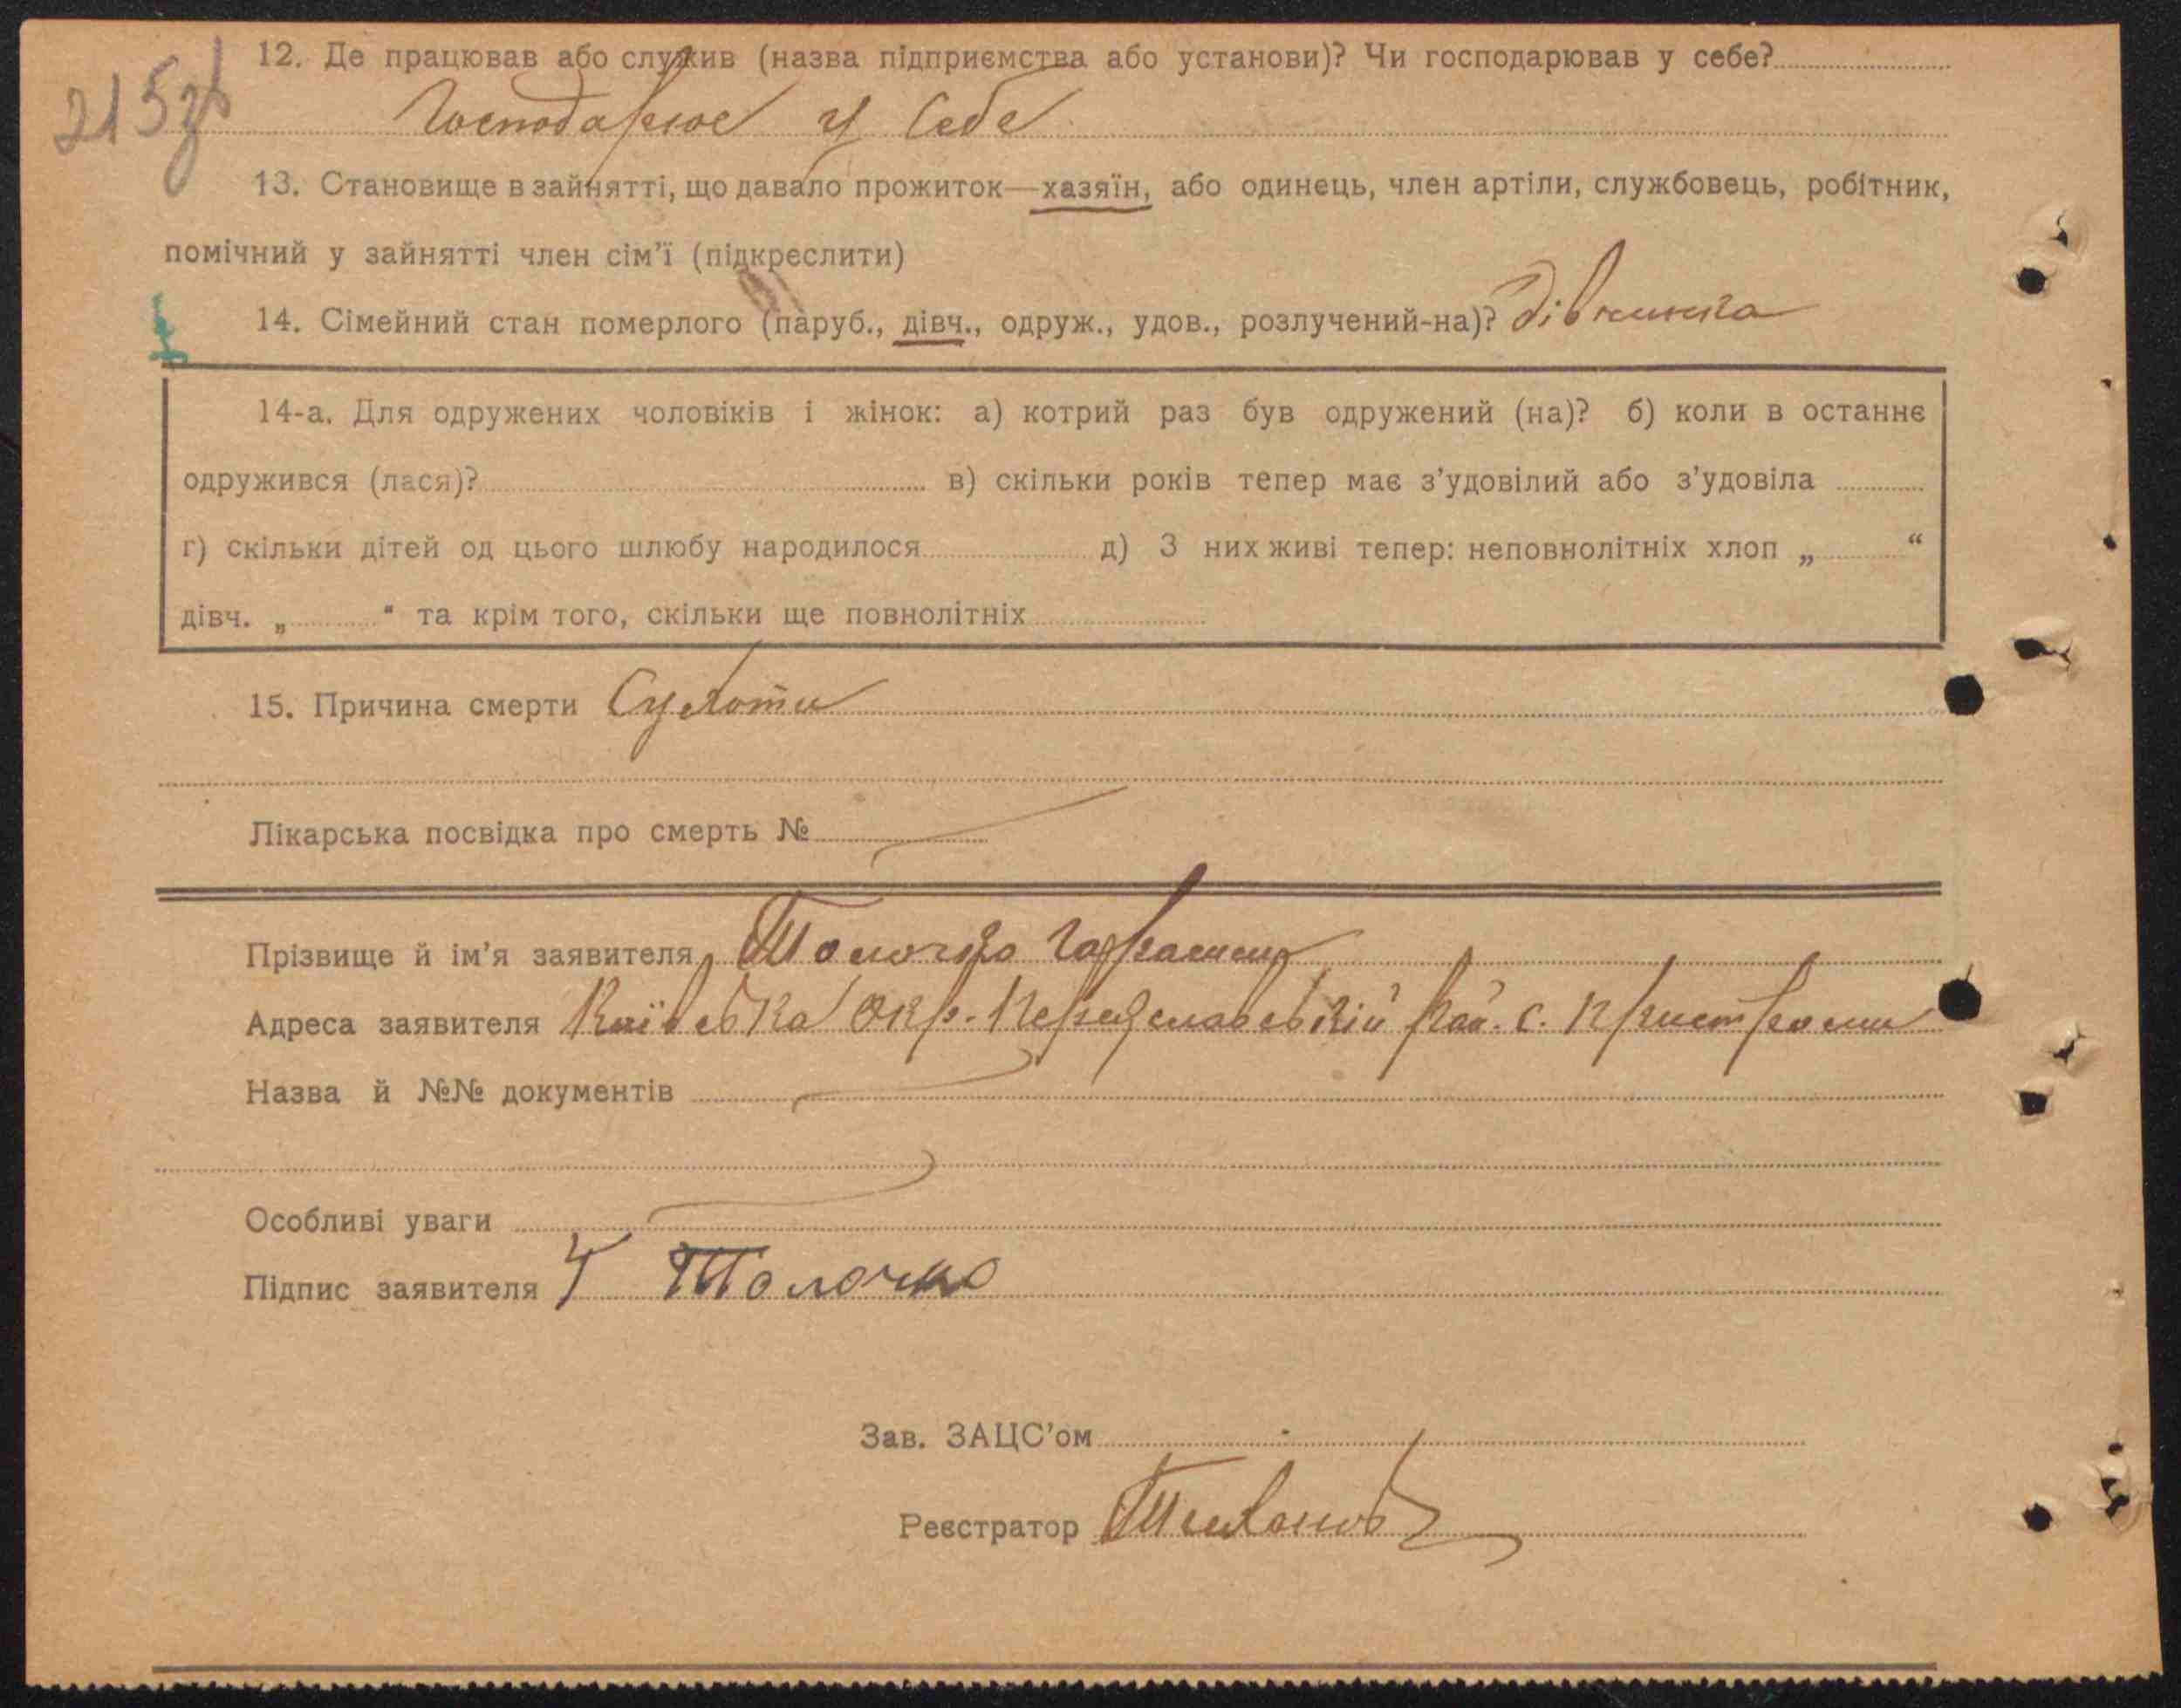 215зв
12. Де працював або служив (назва підприємства або установи)? Чи господарював у себе?
Господарює у себе
13. Становище в зайнятті, що давало прожиток—хазяїн, або одинець, член артіли, службовець, робітник,
помічний у зайнятті член сім’ї (підкреслити)
14. Сімейний стан померлого (паруб., дівч., одруж., удов., розлучений-на)? дівчинка
14-а. Для одружених чоловіків і жінок: а) котрий раз був одружений (на)? б) коли в останнє
одружився (лася)? в) скільки років тепер має з’удовілий або з’удовіла
г) скільки дітей од цього шлюбу народилося д) З них живі тепер: неповнолітніх хлоп „ “
дівч. „ “ та крім того, скільки ще повнолітніх
15. Причина смерти Сухоти
Лікарська посвідка про смерть №
Прізвище й ім’я заявителя Толочко
Адреса заявителя Київська Окр. Переяславській рай. с. Пристроми
Назва й №№ документів
Особливі уваги
Підпис заявителя Толочко
Зав. ЗАЦС’ом
Реєстратор